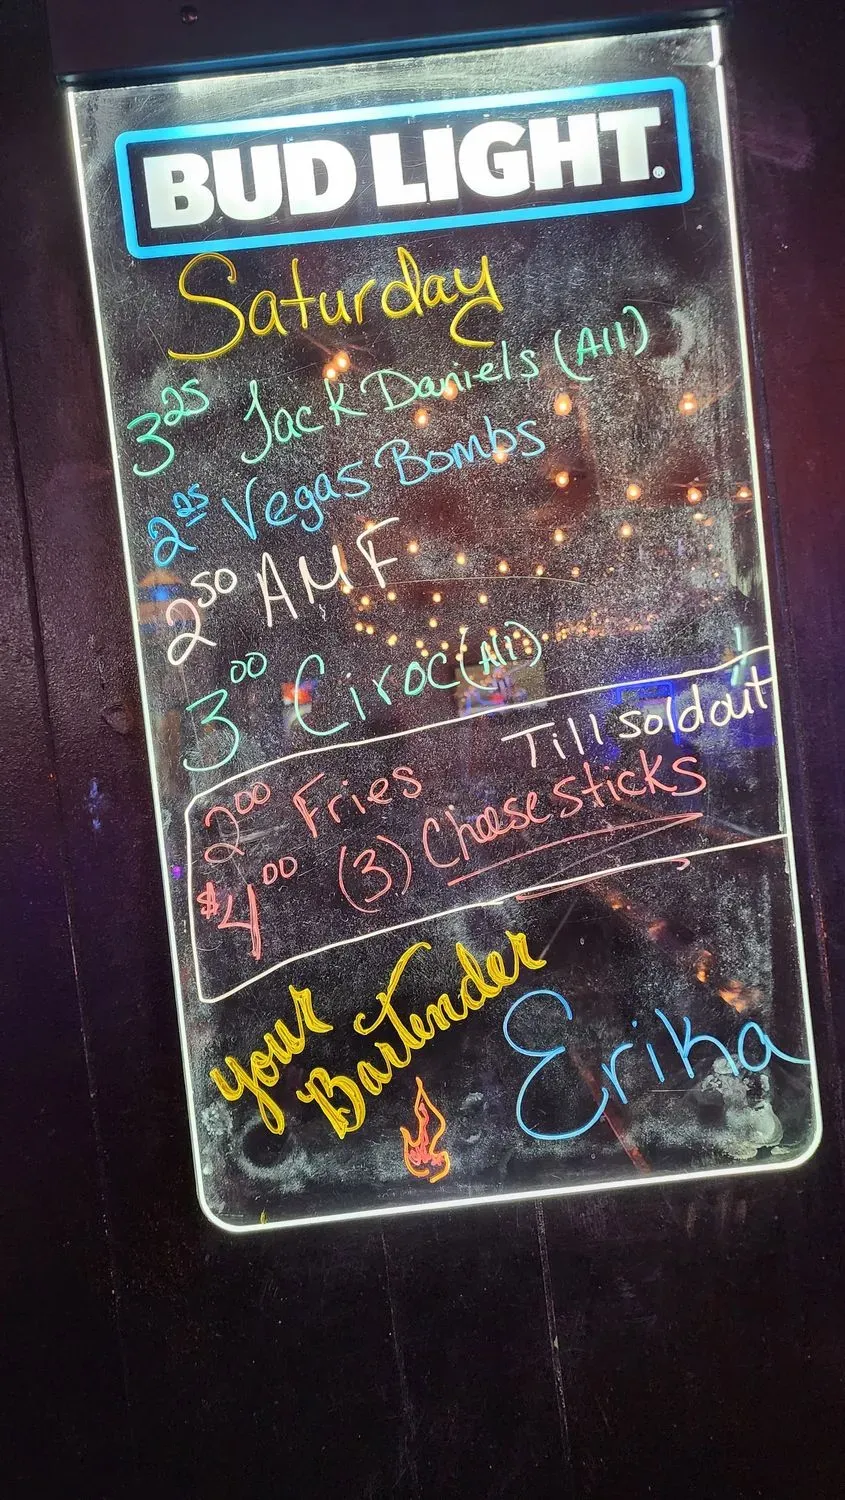 BUD LIGHT®
Saturday
3 25 Jack Daniels (All)
2 25 Vegas Bombs
2 50 AMF
3 00 Ciroc (All)
Till sold out
2 00 Fries
$4 00 (3) Cheese sticks
your
Bartender
Erika